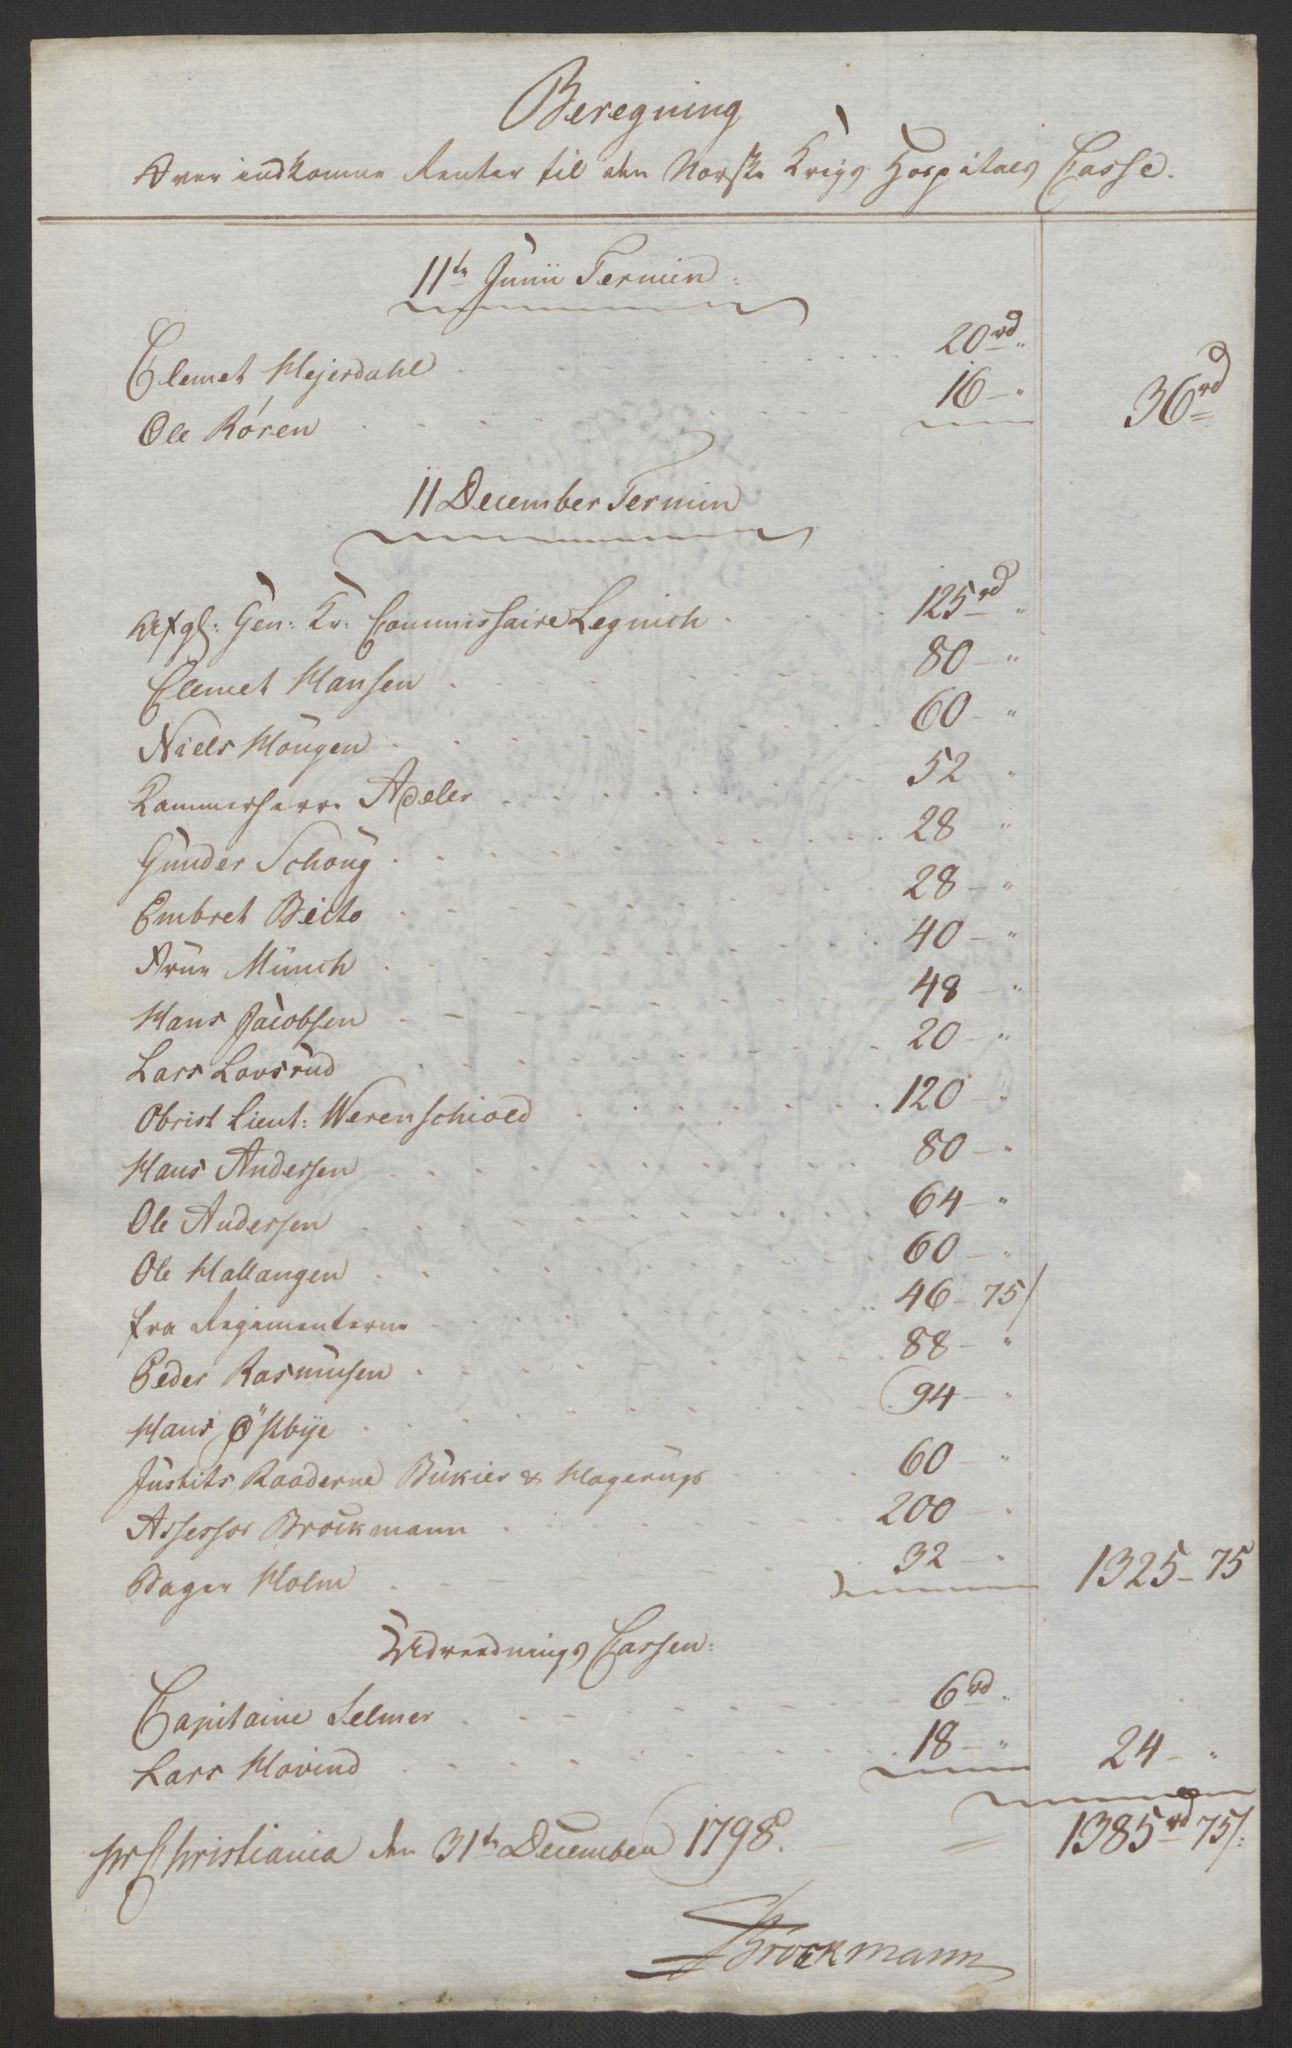 Beregning
Over indkomne Renter til den Norske Krigs Hospitals Casse.
11te Junii Termin:
Clemet Mejerdahl . . . 20rd "
Ole Røren . . . 16 – " 36rd
11 December Termin
Afgl: Gen: Kr: Commissaire Legnich . 125rd "
Clemet Hansen . . . 80 – "
Niels Hougen . . . 60 – "
Kammerherre Adeler . . . 52 "
Gunder Schoug . . . 28 – "
Embret Beito . . . 28 – "
Frue Münch . . . 40 – "
Hans Jacobsen . . . 48 – "
Lars Lovsrud . . . 20 – "
Obrist Lieut: Werenschiold . . . 120 – "
Hans Andersen . . . 80 – "
Ole Andersen . . . 64 – "
Ole Hallangen . . . 60 – "
fra Regimenterne . . . 46 – 75/
Peder Rasmusen . . . 88 – "
Hans Østbye . . . 94 – "
Justits Raaderne Bukier & Hagerups . . . 60 – "
Assessor Brockmann . . . 200 – "
Bager Holm . . . 32 – " 1325 – 75
Udrednings Cassen:
Capitaine Selmer . . . 6rd "
Lars Hovind . . . 18 – " 24 – "
pr Christiania den 31te December 1798. = 1385rd 75/:
Brockmann